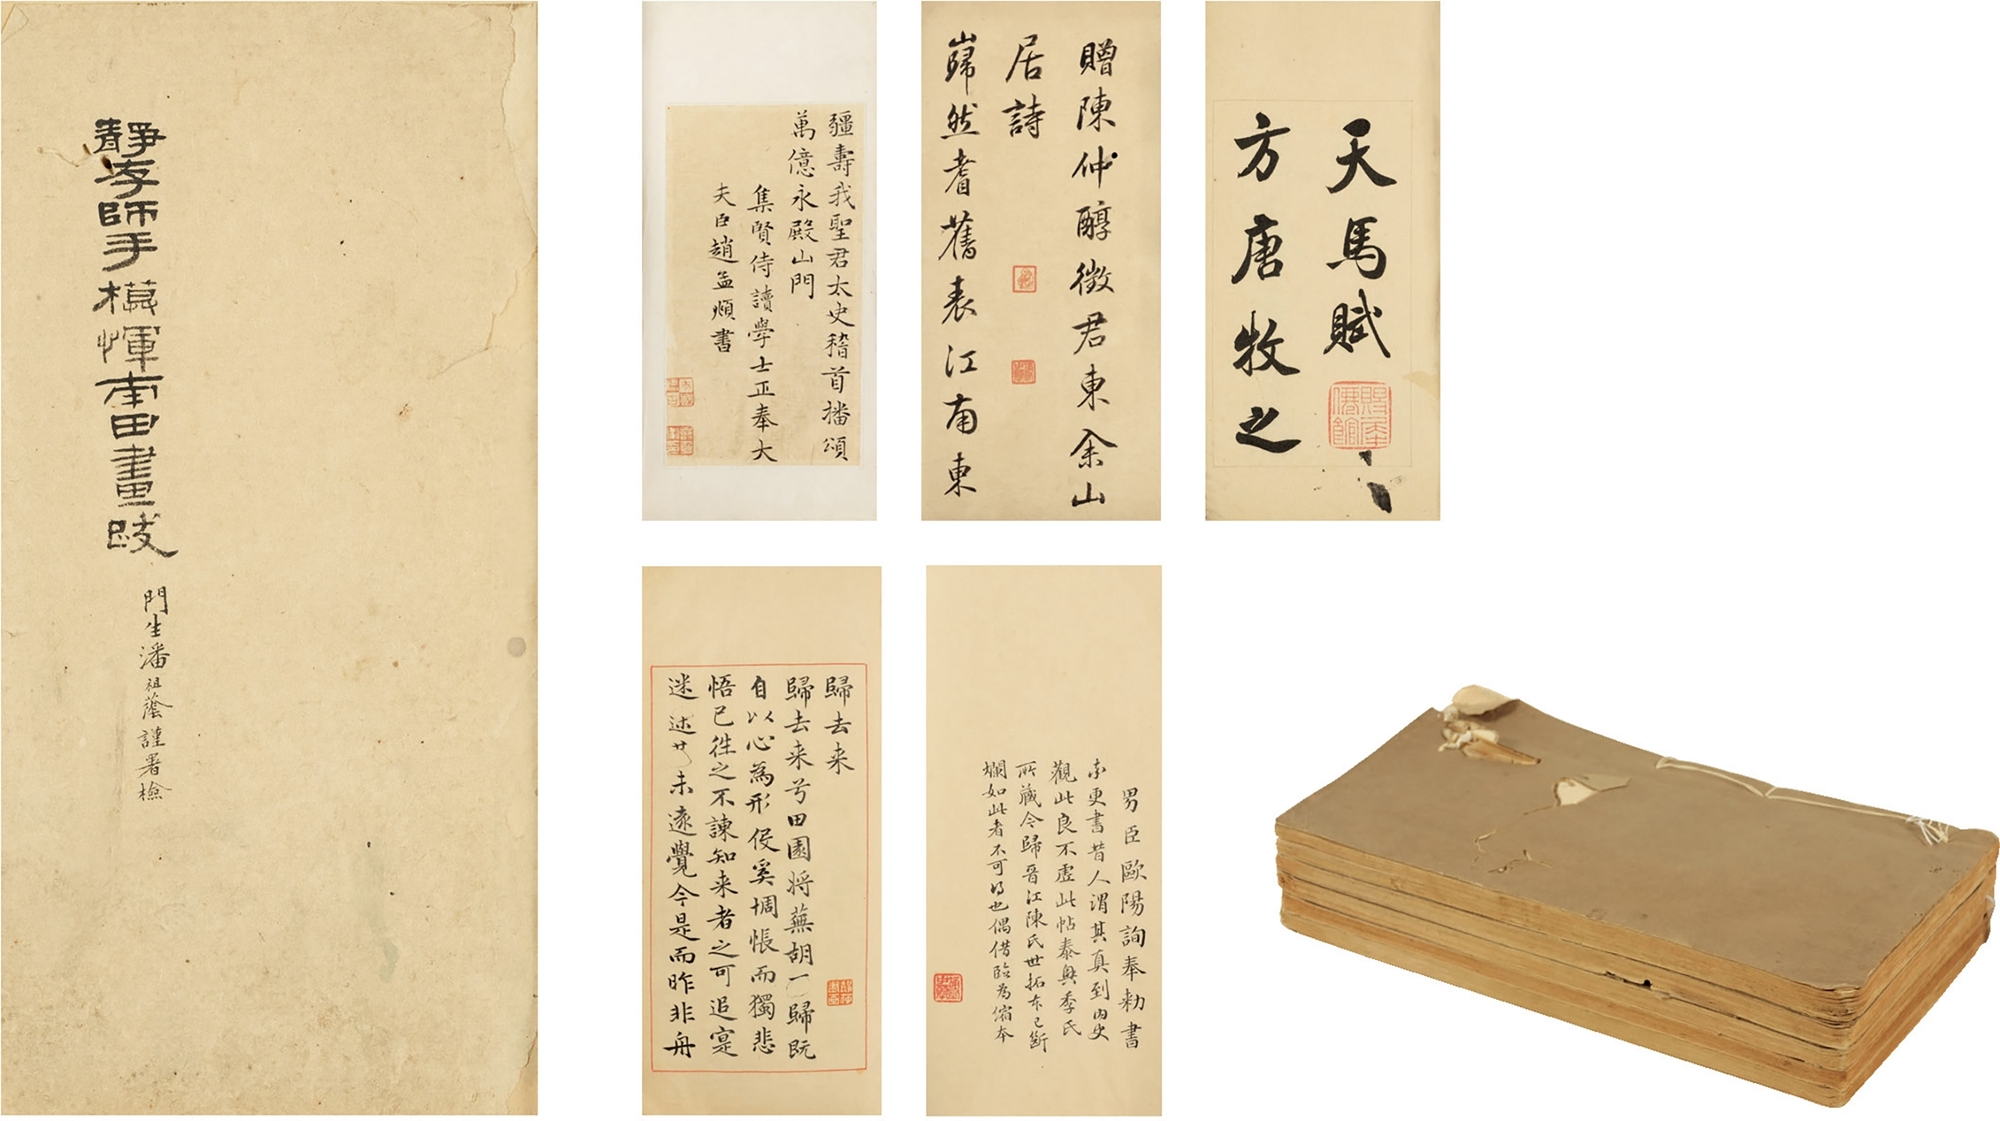 靜存師手橅惲南田畫跋
門生潘祖蔭謹署檢
疆壽我聖君太史稽首播頌
萬億永殿山門
集賢侍讀學士正奉大
夫臣趙孟頫書
贈陳仲醇徵君東佘山
居詩
巋然耆舊表江南東
天馬賦
方唐牧之
歸去来
歸去来兮田園將蕪胡一歸既
自以心為形役奚惆悵而獨悲
悟已往之不諫知来者之可追寔
迷述未遠覺今是而昨非舟
男臣歐陽詢奉勅書
更書昔人謂其真到内史
觀此良不虛此帖泰興季氏
所藏今歸晋江陳氏世拓本已斷
爛如此者不可得也偶借臨為縮本